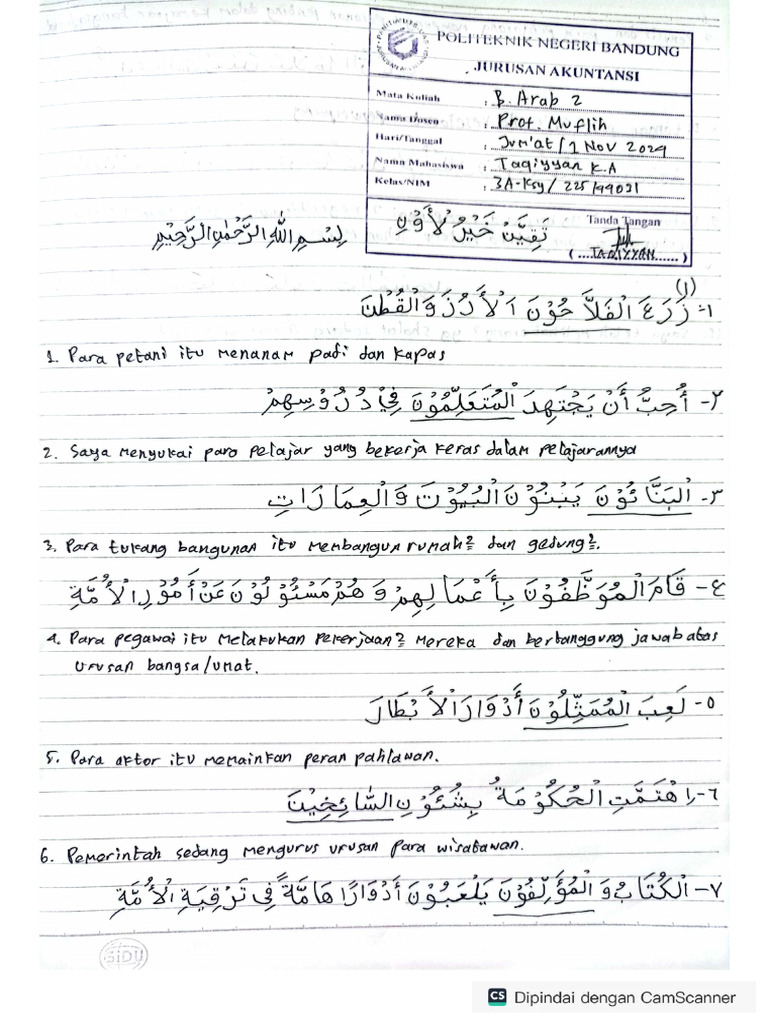 POLITEKNIK NEGERI BANDUNG
JURUSAN AKUNTANSI
Mata Kuliah : B. Arab 2
Nama Dosen : Prof. Muflih
Hari/Tanggal : Jum'at / 1 Nov 2024
Nama Mahasiswa : Taqiyyan K.A
Kelas/NIM : 3A-Ksy / 225/44031
Tanda Tangan
(....TAQIYYAN......)
بِسْمِ اللهِ الرَّحْمٰنِ الرَّحِيْمِ
(1)
١- زَرَعَ الْفَلاَّحُوْنَ الْأَرُزَّ وَالْقُطْنَ
1. Para petani itu menanam padi dan kapas
٢- أُحِبُّ أَنْ يَجْتَهِدَ الْمُتَعَلِّمُوْنَ فِيْ دُرُوْسِهِمْ
2. Saya menyukai para pelajar yang bekerja keras dalam pelajarannya
٣- الْبَنَّائُوْنَ يَبْنُوْنَ الْبُيُوْتَ وَالْعِمَارَاتِ
3. Para tukang bangunan itu membangun rumah2 dan gedung2.
٤- قَامَ الْمُوَظَّفُوْنَ بِأَعْمَالِهِمْ وَهُمْ مَسْئُوْلُوْنَ عَنْ أُمُوْرِ الْأُمَّةِ
4. Para pegawai itu melakukan pekerjaan2 mereka dan bertanggung jawab atas
urusan bangsa/umat.
٥- لَعِبَ الْمُمَثِّلُوْنَ أَدْوَارَ الْأَبْطَارَ
5. Para aktor itu memainkan peran pahlawan.
٦- اِهْتَمَّتِ الْحُكُوْمَةُ بِشُئُوْنِ السَّائِحِيْنَ
6. Pemerintah sedang mengurus urusan para wisatawan.
٧- الْكُتَّابُ وَ الْمُؤَلِّفُوْنَ يَلْعَبُوْنَ أَدْوَارًا هَامَّةً فِى تَرْقِيَةِ الْأُمَّةِ
SiDU
CS Dipindai dengan CamScanner